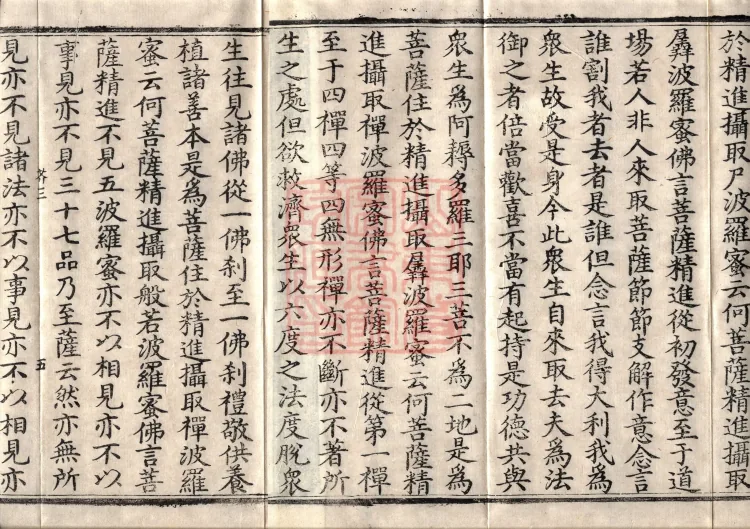 於精進攝取尸波羅蜜云何菩薩精進攝取
羼波羅蜜佛言菩薩精進從初發意至于道
場若人非人來取菩薩節節支解作意念言
誰割我者去者是誰但念言我得大利我為
衆生故受是身今此衆生自來取去夫為法
御之者倍當歡喜不當有起持是功德共與
衆生為阿耨多羅三耶三菩不為二地是為
菩薩住於精進攝取羼波羅蜜云何菩薩精
進攝取禪波羅蜜佛言菩薩精進從第一禪
至于四禪四等四無形禪亦不斷亦不著所
生之處但欲救濟衆生以六度之法度脫衆
生往見諸佛從一佛刹至一佛刹禮敬供養
植諸善本是為菩薩住於精進攝取禪波羅
蜜云何菩薩精進攝取般若波羅蜜佛言菩
薩精進不見五波羅蜜亦不以相見亦不以
事見亦不見三十七品乃至薩云然亦無所
芥三 五
見亦不見諸法亦不以事見亦不以相見亦